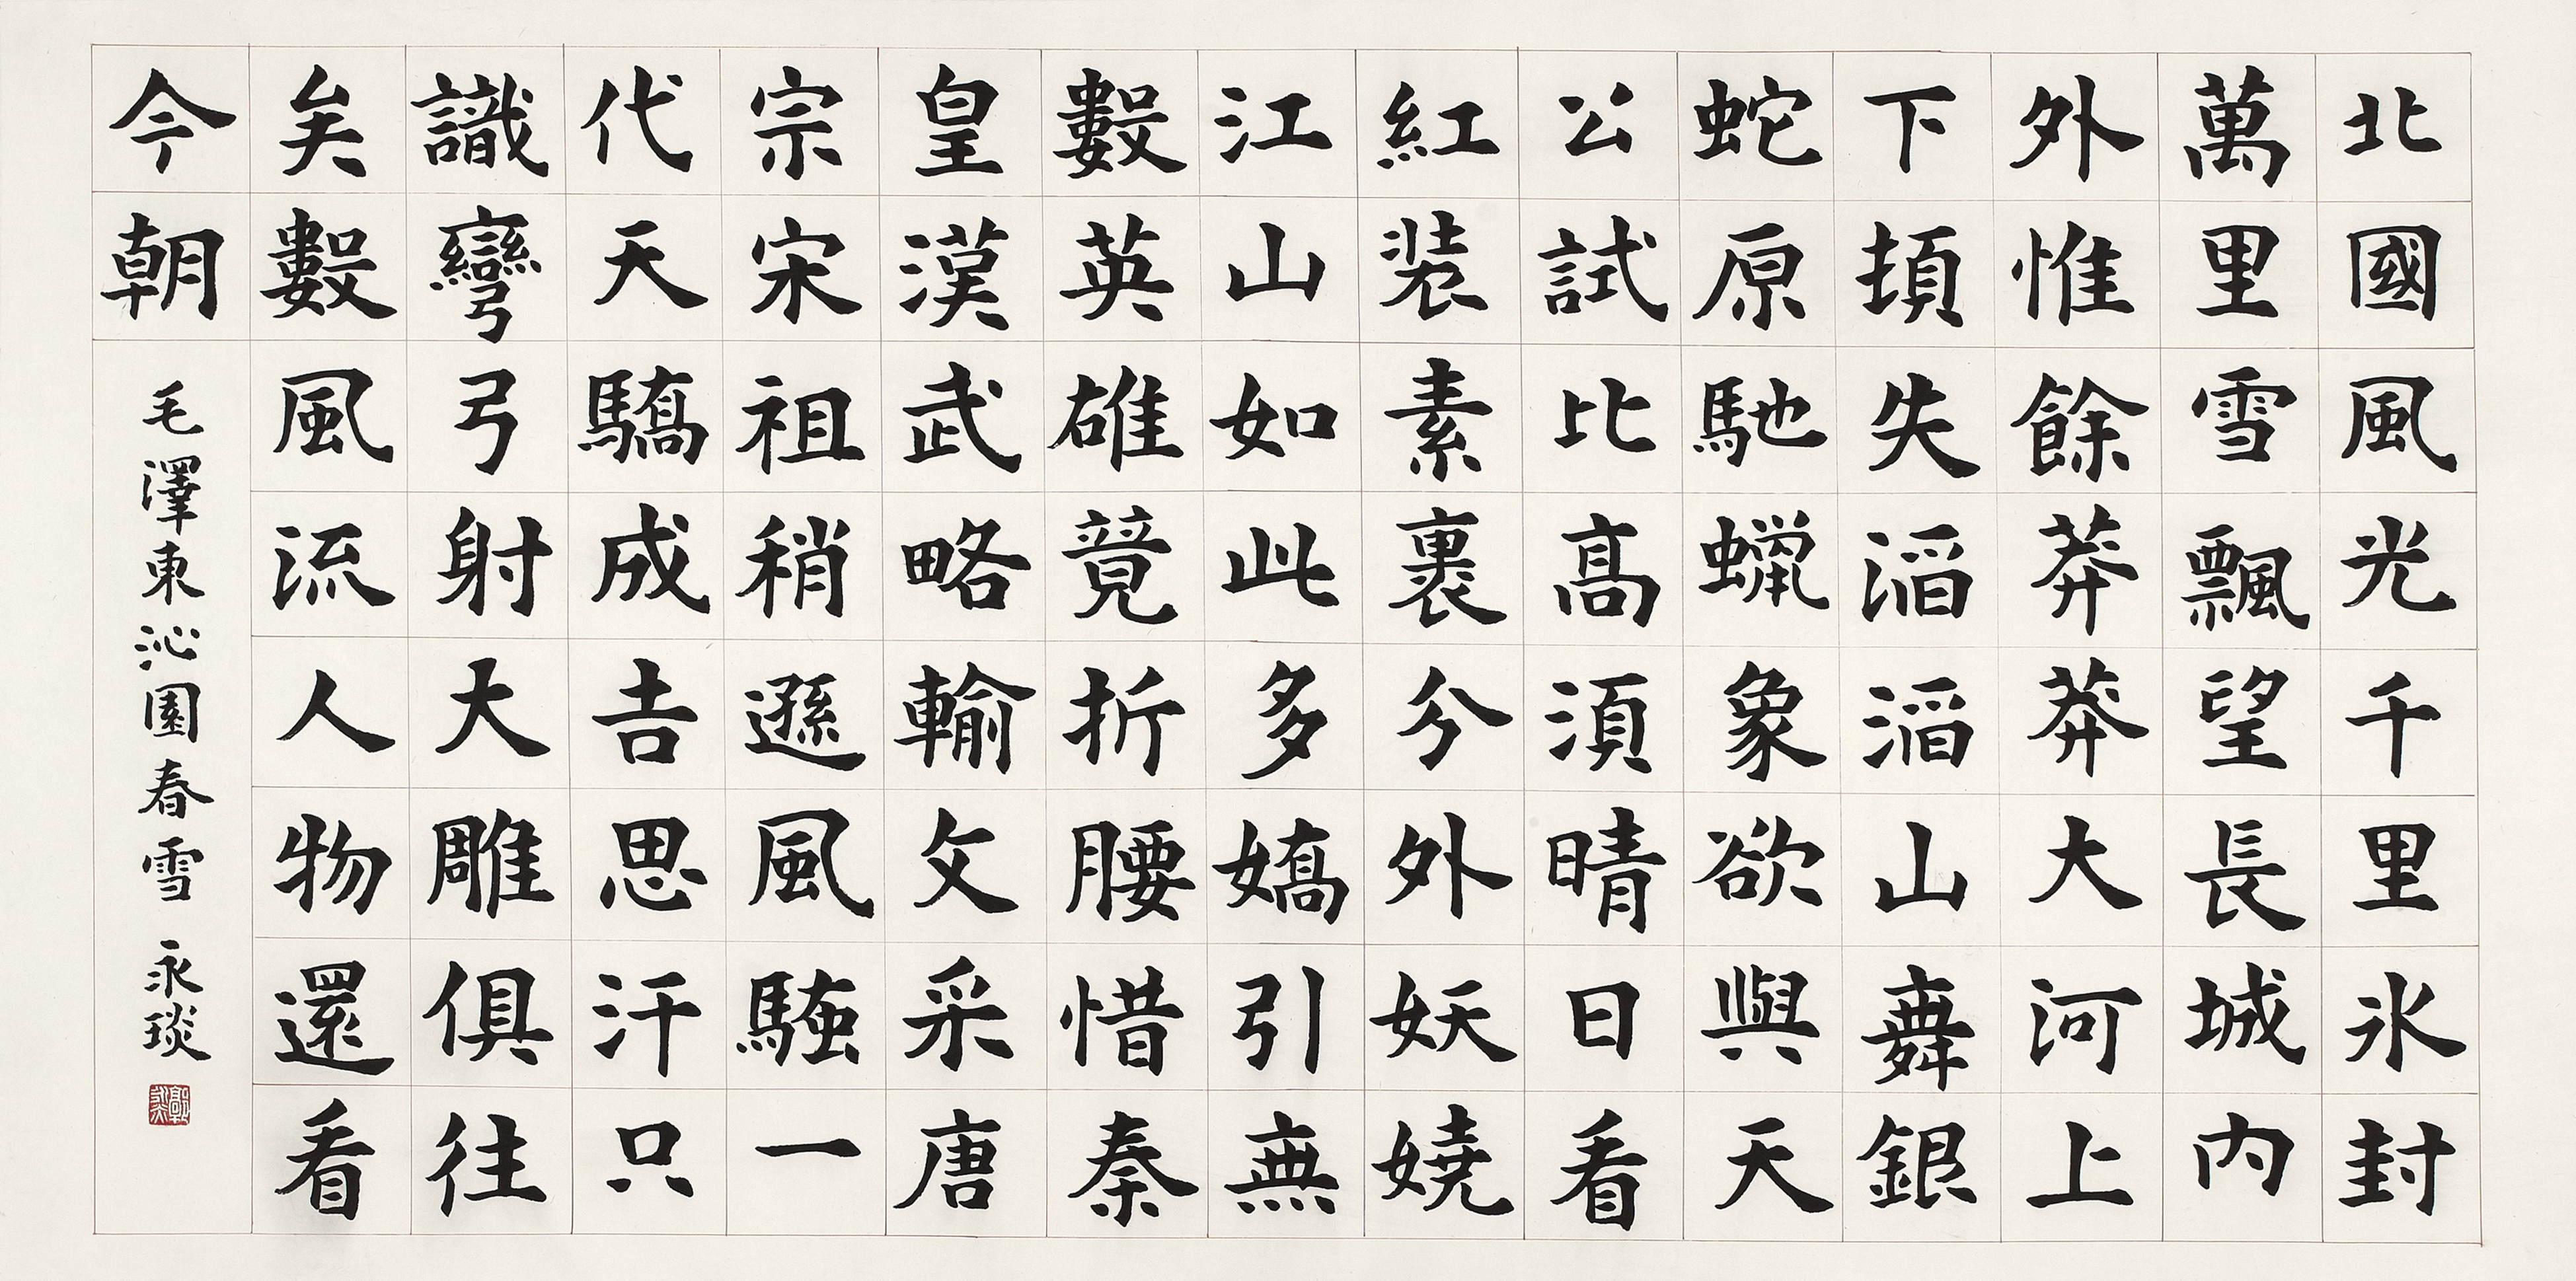 北國風光千里氷封
萬里雪飄望長城内
外惟餘莽莽大河上
下頓失滔滔山舞銀
蛇原馳蠟象欲與天
公試比高須晴日看
紅装素裹分外妖嬈
江山如此多嬌引無
數英雄竟折腰惜秦
皇漢武略輸文采唐
宗宋祖稍遜風騷一
代天驕成吉思汗只
識彎弓射大雕俱往
矣數風流人物還看
今朝
毛澤東沁園春雪 永琰